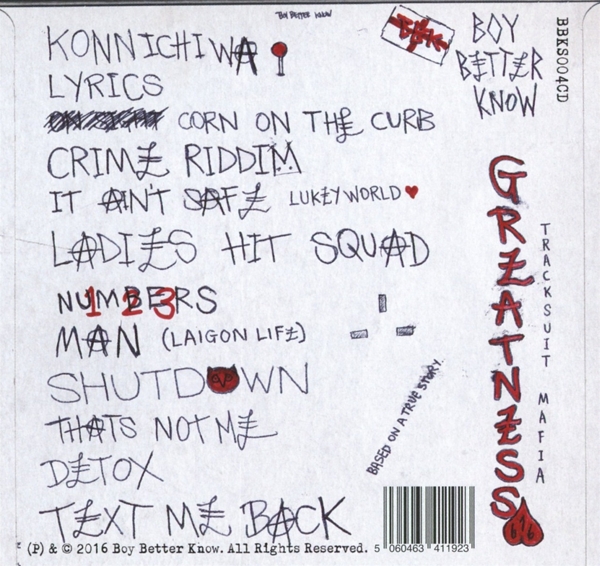 BOY BETTER KNOW
KONNICHIWA
LYRICS
CORN ON THE CURB
CRIME RIDDIM
IT AIN'T SAFE LUKEYWORLD
LADIES HIT SQUAD
NUMBERS
123
MAN (LAIGON LIFE)
SHUTDOWN
THATS NOT ME
DETOX
TEXT ME BACK
(P) & © 2016 Boy Better Know. All Rights Reserved.
5 060463 411923
BASED ON A TRUE STORY.
BOY
BETTER
KNOW
BBKS004CD
GREATNESS
TRACKSUIT MAFIA
616